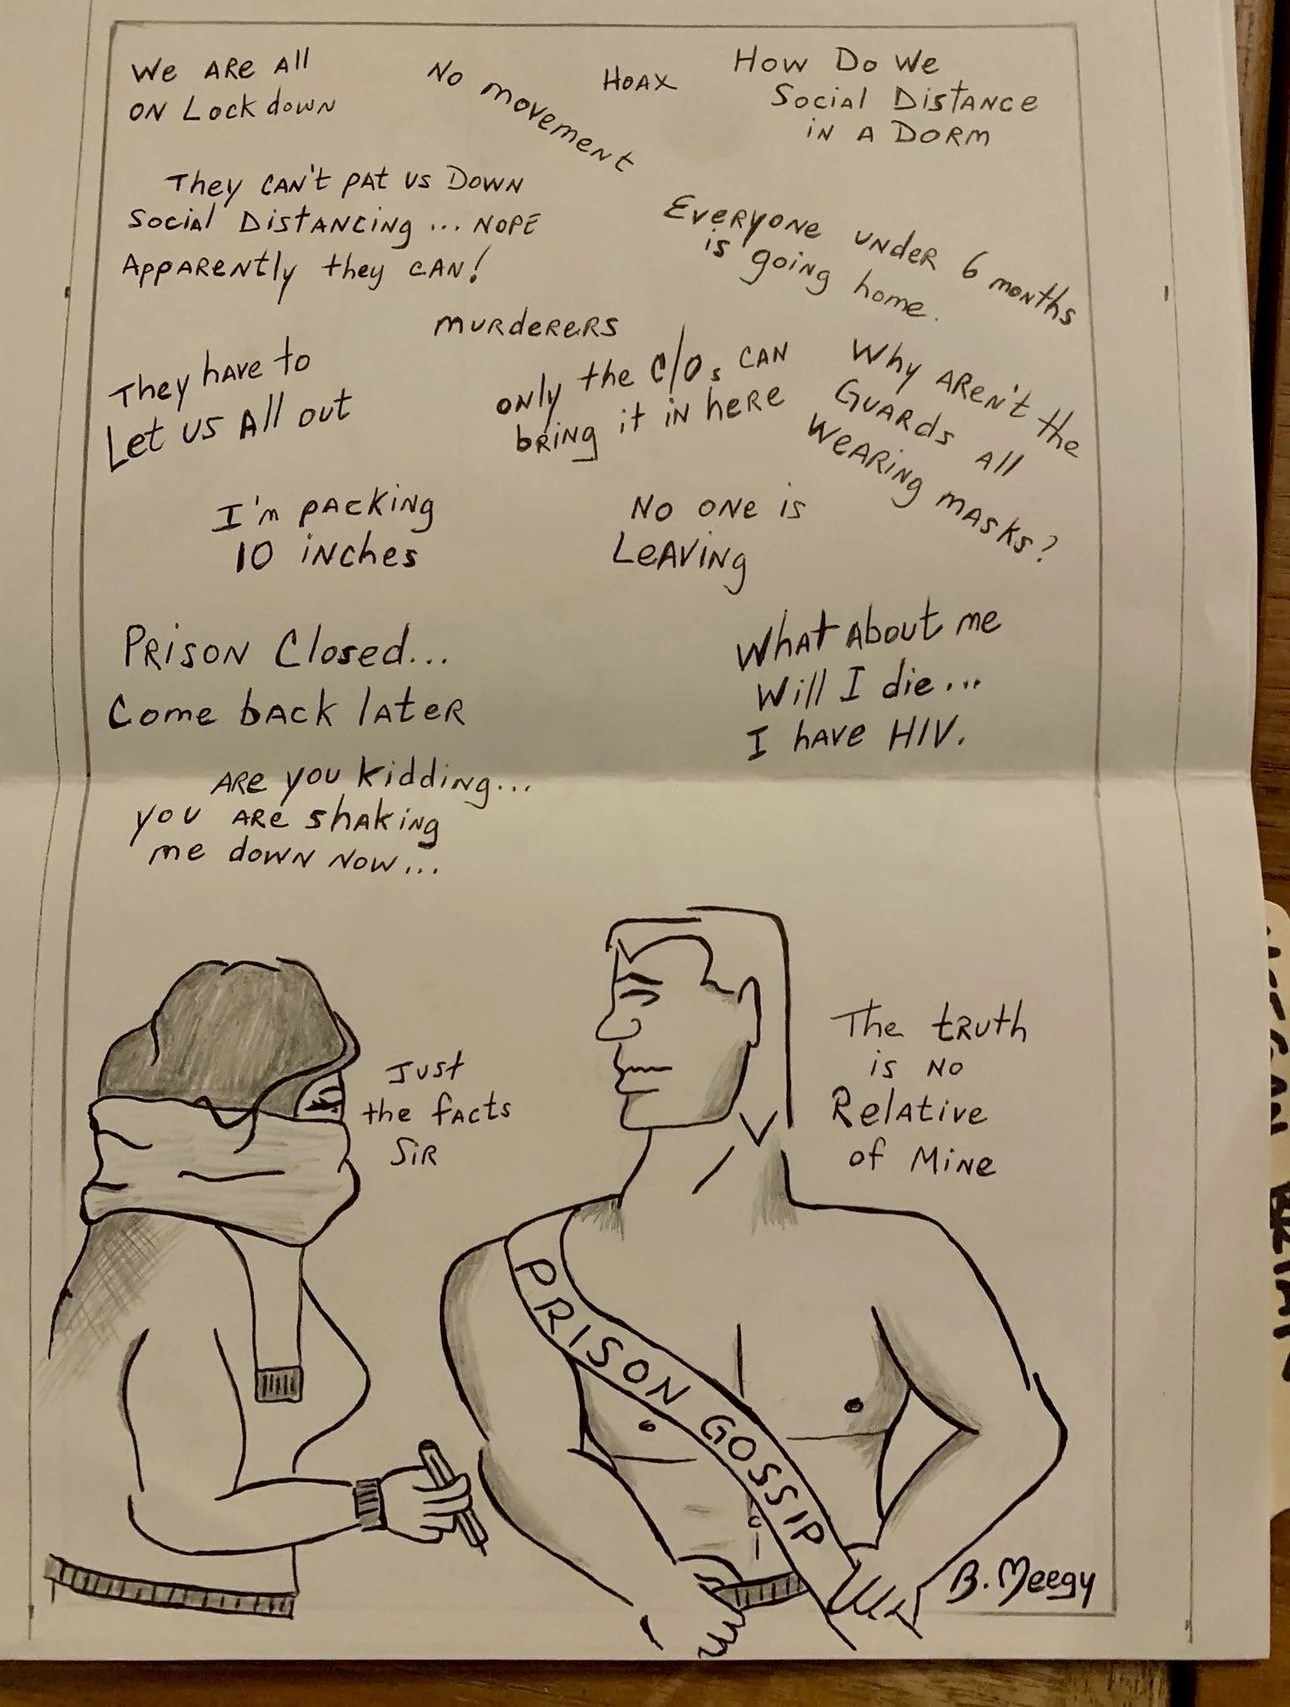 We are all
on Lockdown
No movement
Hoax
How Do We
Social Distance
in a Dorm
They can't pat us down
Social Distancing ... nope
Apparently they can!
Everyone under 6 months
is going home.
murderers
They have to
Let us all out
only the C/Os can
bring it in here
Why aren't the
Guards all
wearing masks?
I'm packing
10 inches
No one is
Leaving
Prison Closed...
Come back later
What about me
Will I die...
I have HIV.
Are you kidding...
you are shaking
me down now...
Just
the facts
Sir
The truth
is no
Relative
of Mine
PRISON GOSSIP
B. Meegy